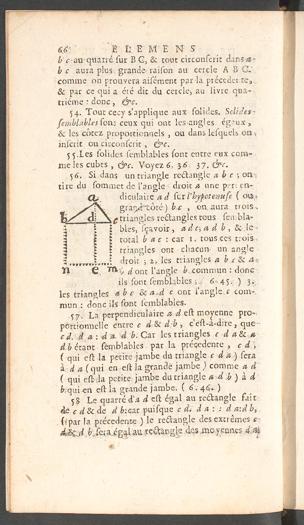 66 ELEMENS
b c au quarré sur B C, & tout circonscrit dans a
b c aura plus grande raison au cercle A B C.
comme on prouvera aisément par la précedente,
& par ce qui a été dit du cercle, au livre qua-
triéme : donc, &c.
54. Tout cecy s'applique aux solides. Solides
semblables sont ceux qui ont les angles égaux,
& les côtez proportionnels, ou dans lesquels on
inscrit ou circonscrit, &c.
55. Les solides semblables sont entre eux com-
me les cubes, &c. Voyez 6. 36. 37. &c.
56. Si dans un triangle rectangle a b c, on
tire du sommet de l'angle droit a une perpen-
diculaire a d sur l'hypotenuse ( ou
grand côté) b c, on aura trois
triangles rectangles tous sembla-
bles, sçavoir, a d c, a d b, & le
total b a c : car 1. tous ces trois
triangles ont chacun un angle
droit ; 2. les triangles a b c & a
d ont l'angle b commun : donc
ils sont semblables ; 6-45. ) 3.
les triangles a b c & a d c ont l'angle c com-
mun : donc ils sont semblables.
a
b d c
n e m
57. La perpendiculaire a d est moyenne pro-
portionnelle entre c d & d b, c'est-à-dire, que
c d. d a : d a. d b. Car les triangles c d a & a
d b étant semblables par la précedente, c d,
( qui est la petite jambe du triangle c d a ) sera
à d a ( qui en est la grande jambe ) comme a d
( qui est la petite jambe du triangle a d b ) à d
b qui en est la grande jambe. ( 6. 46. )
58 Le quarré d'a d est égal au rectangle fait
de c d & de d b: car puisque c d. d a : : d a: d b,
( par la précedente ) le rectangle des extrêmes c
d & d b sera égal au rectangle des moyennes d a